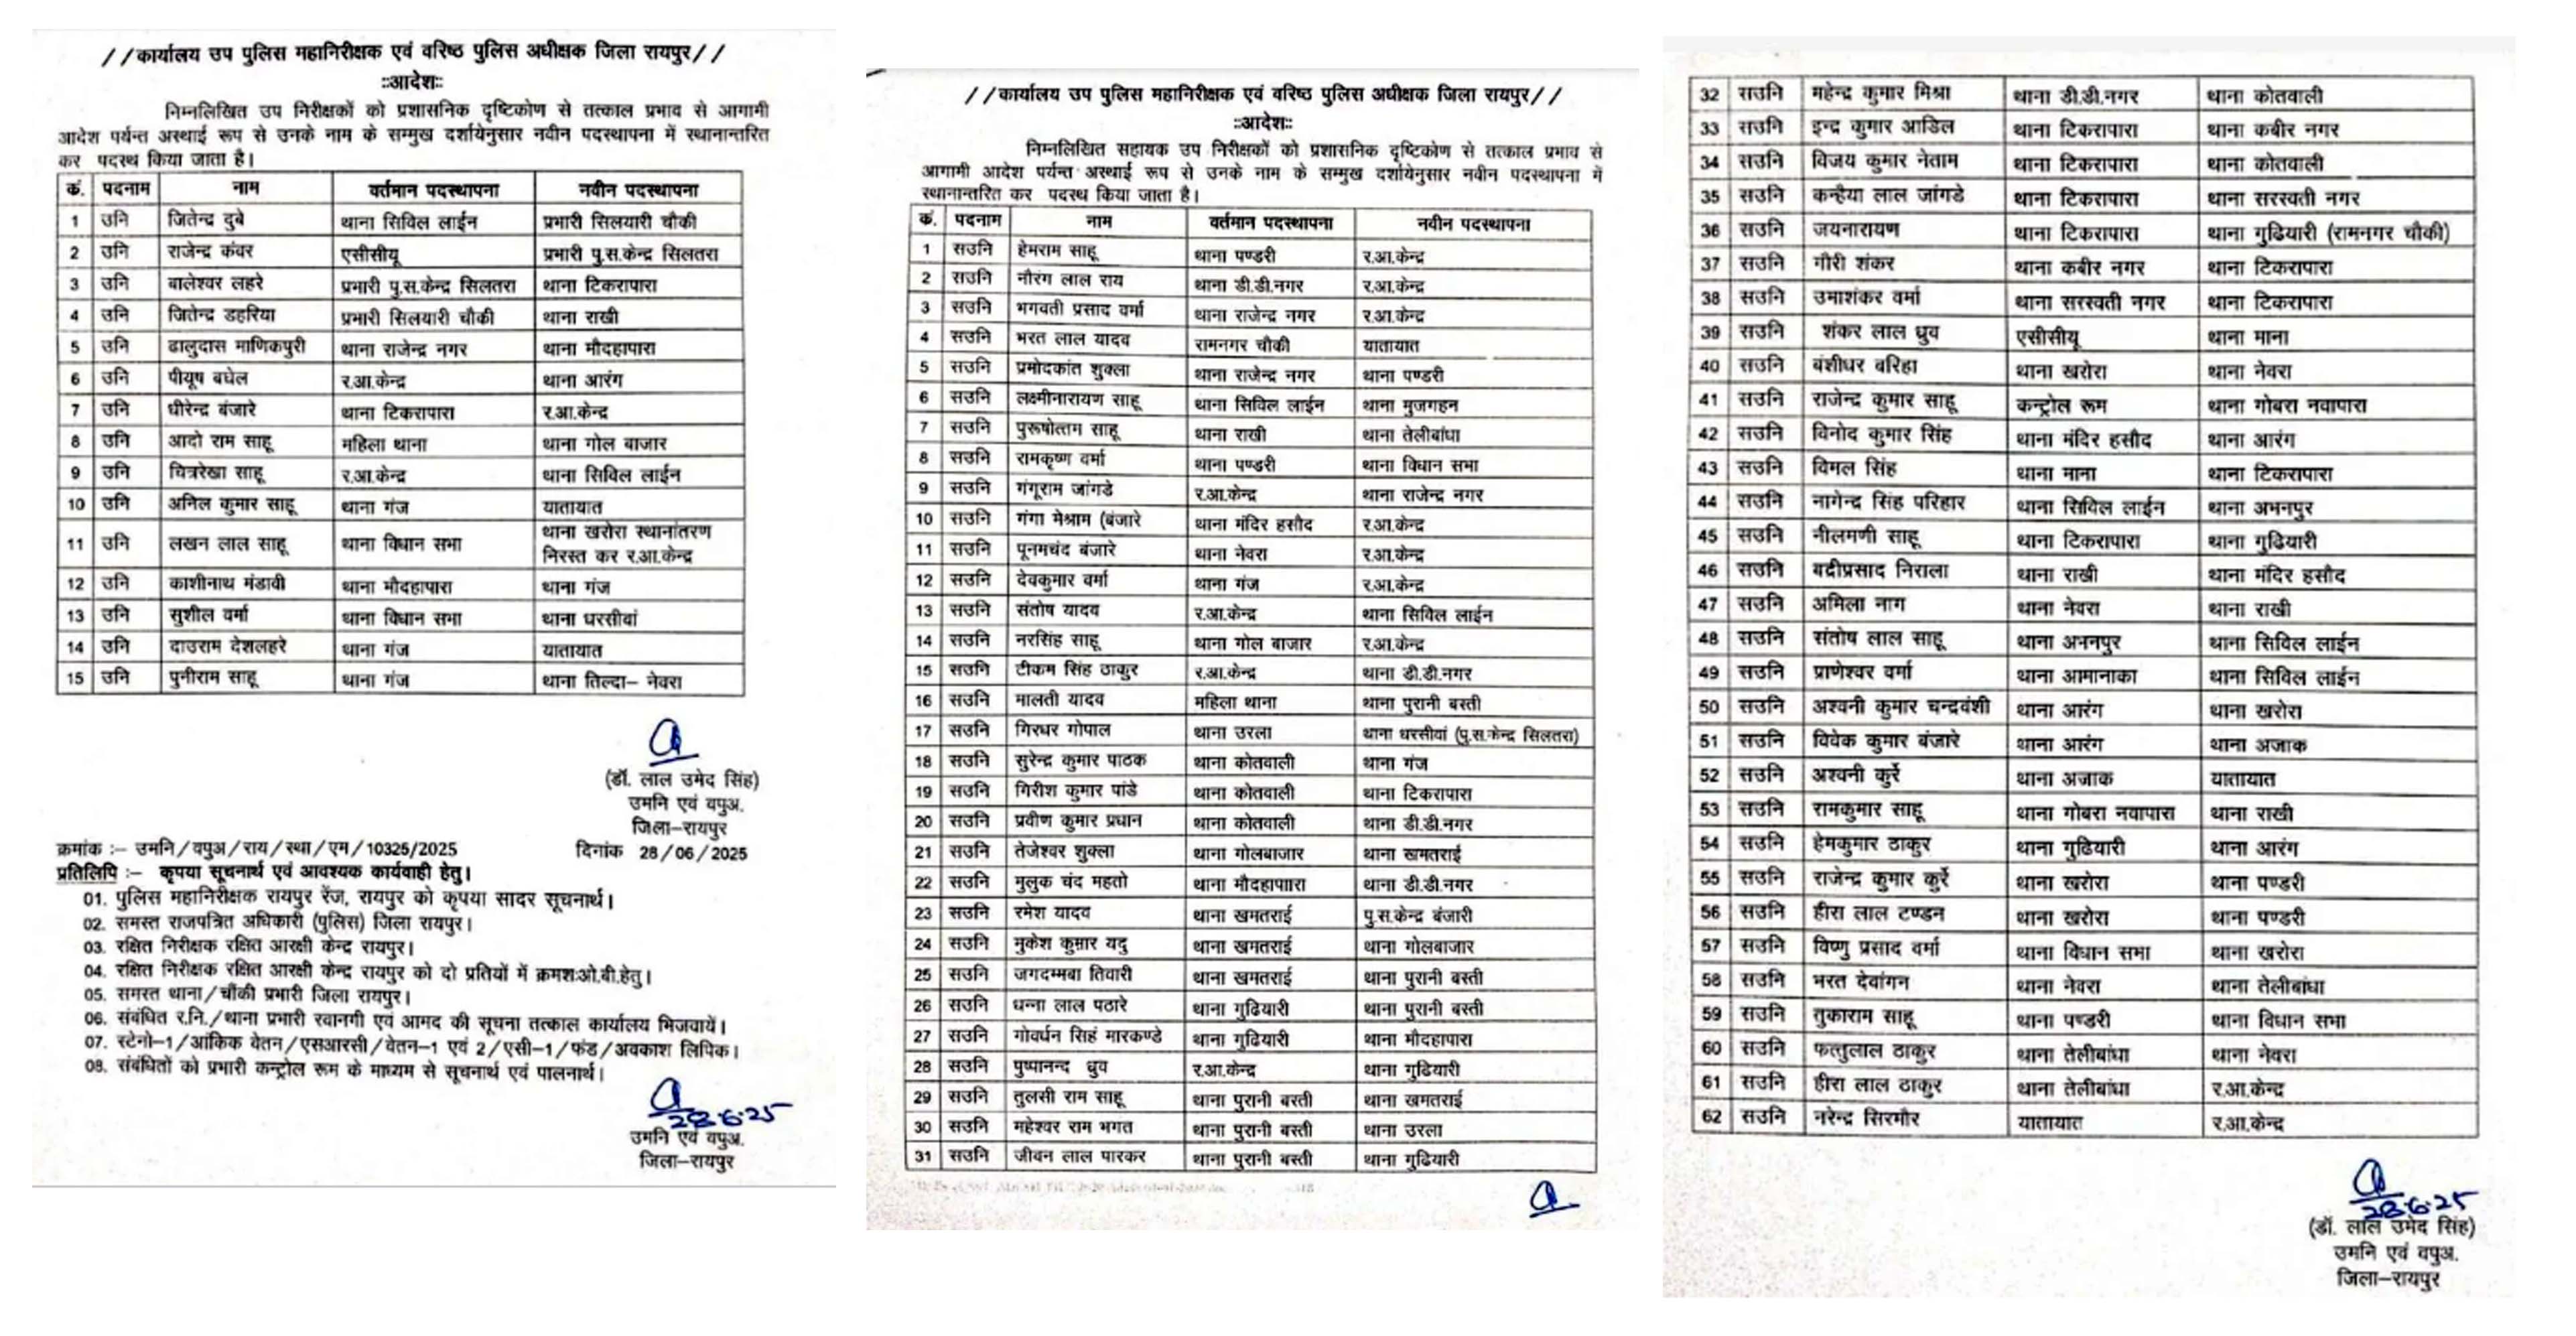 //कार्यालय उप पुलिस महानिरीक्षक एवं वरिष्ठ पुलिस अधीक्षक जिला रायपुर//
::आदेश::
निम्नलिखित उप निरीक्षकों को प्रशासनिक दृष्टिकोण से तत्काल प्रभाव से आगामी
आदेश पर्यन्त अस्थाई रूप से उनके नाम के सम्मुख दर्शायेनुसार नवीन पदस्थापना में स्थानान्तरित
कर पदस्थ किया जाता है।
कं. पदनाम नाम वर्तमान पदस्थापना नवीन पदस्थापना
1 उनि जितेन्द्र दुबे थाना सिविल लाईन प्रभारी सिलयारी चौकी
2 उनि राजेन्द्र कंवर एसीसीयू प्रभारी पु.स.केन्द्र सिलतरा
3 उनि बालेश्वर लहरे प्रभारी पु.स.केन्द्र सिलतरा थाना टिकरापारा
4 उनि जितेन्द्र डहरिया प्रभारी सिलयारी चौकी थाना राखी
5 उनि ढालुदास माणिकपुरी थाना राजेन्द्र नगर थाना मौदहापारा
6 उनि पीयूष बघेल र.आ.केन्द्र थाना आरंग
7 उनि धीरेन्द्र बंजारे थाना टिकरापारा र.आ.केन्द्र
8 उनि आदो राम साहू महिला थाना थाना गोल बाजार
9 उनि चित्ररेखा साहू र.आ.केन्द्र थाना सिविल लाईन
10 उनि अनिल कुमार साहू थाना गंज यातायात
11 उनि लखन लाल साहू थाना विधान सभा थाना खरोरा स्थानांतरण
निरस्त कर र.आ.केन्द्र
12 उनि काशीनाथ मंडावी थाना मौदहापारा थाना गंज
13 उनि सुशील वर्मा थाना विधान सभा थाना धरसीवां
14 उनि दाउराम देशलहरे थाना गंज यातायात
15 उनि पुनीराम साहू थाना गंज थाना तिल्दा– नेवरा
(डॉ. लाल उमेद सिंह)
उमनि एवं वपुअ.
जिला–रायपुर
क्रमांक :– उमनि/वपुअ/राय/स्था/एम/10325/2025 दिनांक 28/06/2025
प्रतिलिपि :– कृपया सूचनार्थ एवं आवश्यक कार्यवाही हेतु।
01. पुलिस महानिरीक्षक रायपुर रेंज, रायपुर को कृपया सादर सूचनार्थ।
02. समस्त राजपत्रित अधिकारी (पुलिस) जिला रायपुर।
03. रक्षित निरीक्षक रक्षित आरक्षी केन्द्र रायपुर।
04. रक्षित निरीक्षक रक्षित आरक्षी केन्द्र रायपुर को दो प्रतियों में क्रमशःओ.बी.हेतु।
05. समस्त थाना/चौंकी प्रभारी जिला रायपुर।
06. संबंधित र.नि./थाना प्रभारी रवानगी एवं आमद की सूचना तत्काल कार्यालय भिजवायें।
07. स्टेनो–1/आंकिक वेतन/एसआरसी/वेतन–1 एवं 2/एसी–1/फंड/अवकाश लिपिक।
08. संबंधितों को प्रभारी कन्ट्रोल रूम के माध्यम से सूचनार्थ एवं पालनार्थ।
28.6.25
उमनि एवं वपुअ.
जिला–रायपुर
//कार्यालय उप पुलिस महानिरीक्षक एवं वरिष्ठ पुलिस अधीक्षक जिला रायपुर//
::आदेश::
निम्नलिखित सहायक उप निरीक्षकों को प्रशासनिक दृष्टिकोण से तत्काल प्रभाव से
आगामी आदेश पर्यन्त अस्थाई रूप से उनके नाम के सम्मुख दर्शायेनुसार नवीन पदस्थापना में
स्थानान्तरित कर पदस्थ किया जाता है।
कं. पदनाम नाम वर्तमान पदस्थापना नवीन पदस्थापना
1 सउनि हेमराम साहू थाना पण्डरी र.आ.केन्द्र
2 सउनि नौरंग लाल राय थाना डी.डी.नगर र.आ.केन्द्र
3 सउनि भगवती प्रसाद वर्मा थाना राजेन्द्र नगर र.आ.केन्द्र
4 सउनि भरत लाल यादव रामनगर चौकी यातायात
5 सउनि प्रमोदकांत शुक्ला थाना राजेन्द्र नगर थाना पण्डरी
6 सउनि लक्ष्मीनारायण साहू थाना सिविल लाईन थाना मुजगहन
7 सउनि पुरूषोत्तम साहू थाना राखी थाना तेलीबांधा
8 सउनि रामकृष्ण वर्मा थाना पण्डरी थाना विधान सभा
9 सउनि गंगूराम जांगडे र.आ.केन्द्र थाना राजेन्द्र नगर
10 सउनि गंगा मेश्राम (बंजारे थाना मंदिर हसौद र.आ.केन्द्र
11 सउनि पूनमचंद बंजारे थाना नेवरा र.आ.केन्द्र
12 सउनि देवकुमार वर्मा थाना गंज र.आ.केन्द्र
13 सउनि संतोष यादव र.आ.केन्द्र थाना सिविल लाईन
14 सउनि नरसिंह साहू थाना गोल बाजार र.आ.केन्द्र
15 सउनि टीकम सिंह ठाकुर र.आ.केन्द्र थाना डी.डी.नगर
16 सउनि मालती यादव महिला थाना थाना पुरानी बस्ती
17 सउनि गिरधर गोपाल थाना उरला थाना धरसीवां (पु.स.केन्द्र सिलतरा)
18 सउनि सुरेन्द्र कुमार पाठक थाना कोतवाली थाना गंज
19 सउनि गिरीश कुमार पांडे थाना कोतवाली थाना टिकरापारा
20 सउनि प्रवीण कुमार प्रधान थाना कोतवाली थाना डी.डी.नगर
21 सउनि तेजेश्वर शुक्ला थाना गोलबाजार थाना खमतराई
22 सउनि मुलुक चंद महतो थाना मौदहापाारा थाना डी.डी.नगर
23 सउनि रमेश यादव थाना खमतराई पु.स.केन्द्र बंजारी
24 सउनि मुकेश कुमार यदु थाना खमतराई थाना गोलबाजार
25 सउनि जगदम्मबा तिवारी थाना खमतराई थाना पुरानी बस्ती
26 सउनि धन्ना लाल पठारे थाना गुढियारी थाना पुरानी बस्ती
27 सउनि गोवर्धन सिहं मारकण्डे थाना गुढियारी थाना मौदहापारा
28 सउनि पुष्पानन्द ध्रुव र.आ.केन्द्र थाना गुढियारी
29 सउनि तुलसी राम साहू थाना पुरानी बस्ती थाना खमतराई
30 सउनि महेश्वर राम भगत थाना पुरानी बस्ती थाना उरला
31 सउनि जीवन लाल पारकर थाना पुरानी बस्ती थाना गुढियारी
32 सउनि महेन्द्र कुमार मिश्रा थाना डी.डी.नगर थाना कोतवाली
33 सउनि इन्द्र कुमार आडिल थाना टिकरापारा थाना कबीर नगर
34 सउनि विजय कुमार नेताम थाना टिकरापारा थाना कोतवाली
35 सउनि कन्हैया लाल जांगडे थाना टिकरापारा थाना सरस्वती नगर
36 सउनि जयनारायण थाना टिकरापारा थाना गुढियारी (रामनगर चौकी)
37 सउनि गौरी शंकर थाना कबीर नगर थाना टिकरापारा
38 सउनि उमाशंकर वर्मा थाना सरस्वती नगर थाना टिकरापारा
39 सउनि शंकर लाल ध्रुव एसीसीयू थाना माना
40 सउनि बंशीधर बरिहा थाना खरोरा थाना नेवरा
41 सउनि राजेन्द्र कुमार साहू कन्ट्रोल रूम थाना गोबरा नवापारा
42 सउनि विनोद कुमार सिंह थाना मंदिर हसौद थाना आरंग
43 सउनि विमल सिंह थाना माना थाना टिकरापारा
44 सउनि नागेन्द्र सिंह परिहार थाना सिविल लाईन थाना अभनपुर
45 सउनि नीलमणी साहू थाना टिकरापारा थाना गुढियारी
46 सउनि बद्रीप्रसाद निराला थाना राखी थाना मंदिर हसौद
47 सउनि अमिला नाग थाना नेवरा थाना राखी
48 सउनि संतोष लाल साहू थाना अभनपुर थाना सिविल लाईन
49 सउनि प्राणेश्वर वर्मा थाना आमानाका थाना सिविल लाईन
50 सउनि अश्वनी कुमार चन्द्रवंशी थाना आरंग थाना खरोरा
51 सउनि विवेक कुमार बंजारे थाना आरंग थाना अजाक
52 सउनि अश्वनी कुर्रे थाना अजाक यातायात
53 सउनि रामकुमार साहू थाना गोबरा नवापारा थाना राखी
54 सउनि हेमकुमार ठाकुर थाना गुढियारी थाना आरंग
55 सउनि राजेन्द्र कुमार कुर्रे थाना खरोरा थाना पण्डरी
56 सउनि हीरा लाल टण्डन थाना खरोरा थाना पण्डरी
57 सउनि विष्णु प्रसाद वर्मा थाना विधान सभा थाना खरोरा
58 सउनि भरत देवांगन थाना नेवरा थाना तेलीबांधा
59 सउनि तुकाराम साहू थाना पण्डरी थाना विधान सभा
60 सउनि फत्तुलाल ठाकुर थाना तेलीबांधा थाना नेवरा
61 सउनि हीरा लाल ठाकुर थाना तेलीबांधा र.आ.केन्द्र
62 सउनि नरेन्द्र सिरमौर यातायात र.आ.केन्द्र
28.6.25
(डॉ. लाल उमेद सिंह)
उमनि एवं वपुअ.
जिला–रायपुर